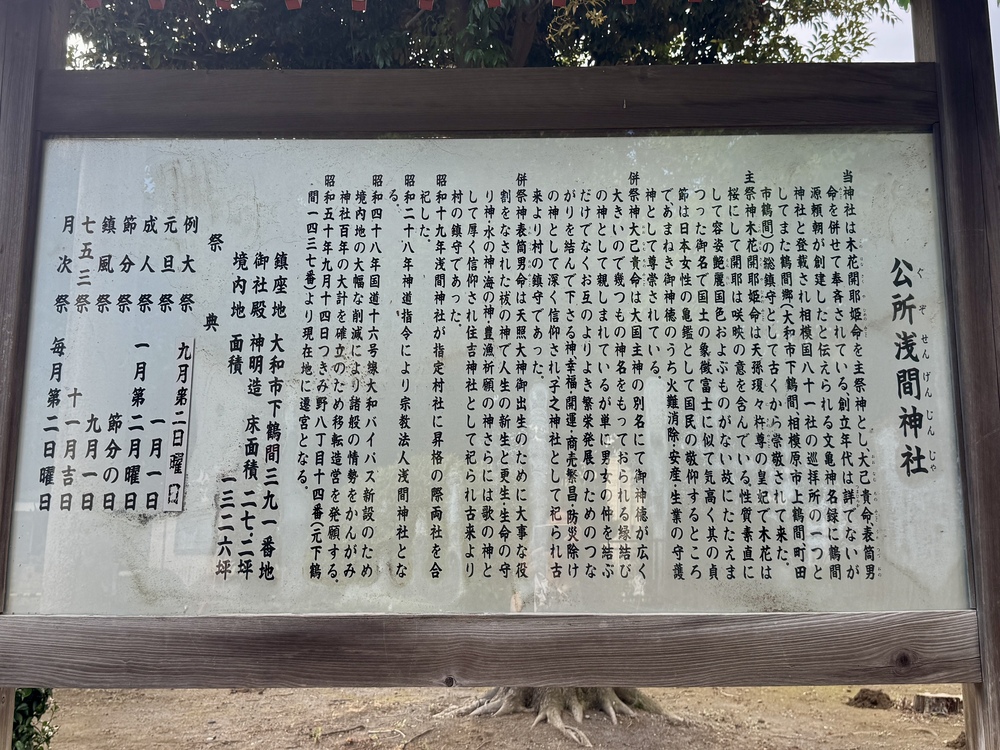 公所浅間神社
ぐぞせんげんじんじゃ
当神社は木花開耶姫命を主祭神とし大己貴命表筒男
命を併せて奉斎されている創立年代は詳でないが
源頼朝が創建したと伝えられる文亀神名録に鶴間
神社と登載され相模国八十一社の巡拝所の一つと
してまた鶴間郷(大和市下鶴間・相模原市上鶴間・町田
市鶴間)の総鎮守として古くから崇敬されて来た。
主祭神木花開耶姫命は天孫瓊々杵尊の皇妃で木花は
桜にして開耶は咲映の意を含んでいる。性質素直に
して容姿艶麗国色およぶものがない故にたたえま
つった御名で国土の象徴富士に似て気高く其の貞
節は日本女性の亀鑑として国民の敬仰するところ
であまねき御神徳のうち火難消除・安産・生業の守護
神として尊崇されている。
併祭神大己貴命は大国主神の別名にて御神徳が広く
大きいので幾つもの神名をもっておられる縁結び
の神として親しまれているが単に男女の仲を結ぶ
だけでなくお互のよりよき繁栄発展のためのつな
がりを結んで下さる神幸福開運・商売繁昌・防災除け
の神として深く信仰され子之神社として祀られ古
来より村の鎮守であった。
併祭神表筒男命は天照大神御出生のために大事な役
割をなされた祓の神で人生の新生と更生生命の守
り神水の神・海の神・豊漁祈願の神さらには歌の神と
して厚く信仰され住吉神社として祀られ古来より
村の鎮守であった。
昭和十九年浅間神社が指定村社に昇格の際両社を合
祀した。
昭和二十八年神道指令により宗教法人浅間神社とな
る。
昭和四十八年国道十六号線大和バイパス新設のため
境内地の大幅な削減により諸般の情勢をかんがみ
神社百年の大計を確立のため移転造営を発願する。
昭和五十年九月十四日つきみ野八丁目十四番(元下鶴
間一四三七番)より現在地に遷宮となる。
鎮座地 大和市下鶴間三九一番地
御社殿 神明造 床面積 二七・二坪
境内地 面積 一三二六坪
祭典
例大祭 九月第二日曜日
元旦祭 一月一日
成人祭 一月第二月曜日
節分祭 節分の日
鎮風祭 九月一日
七五三祭 十一月吉日
月次祭 毎月第二日曜日